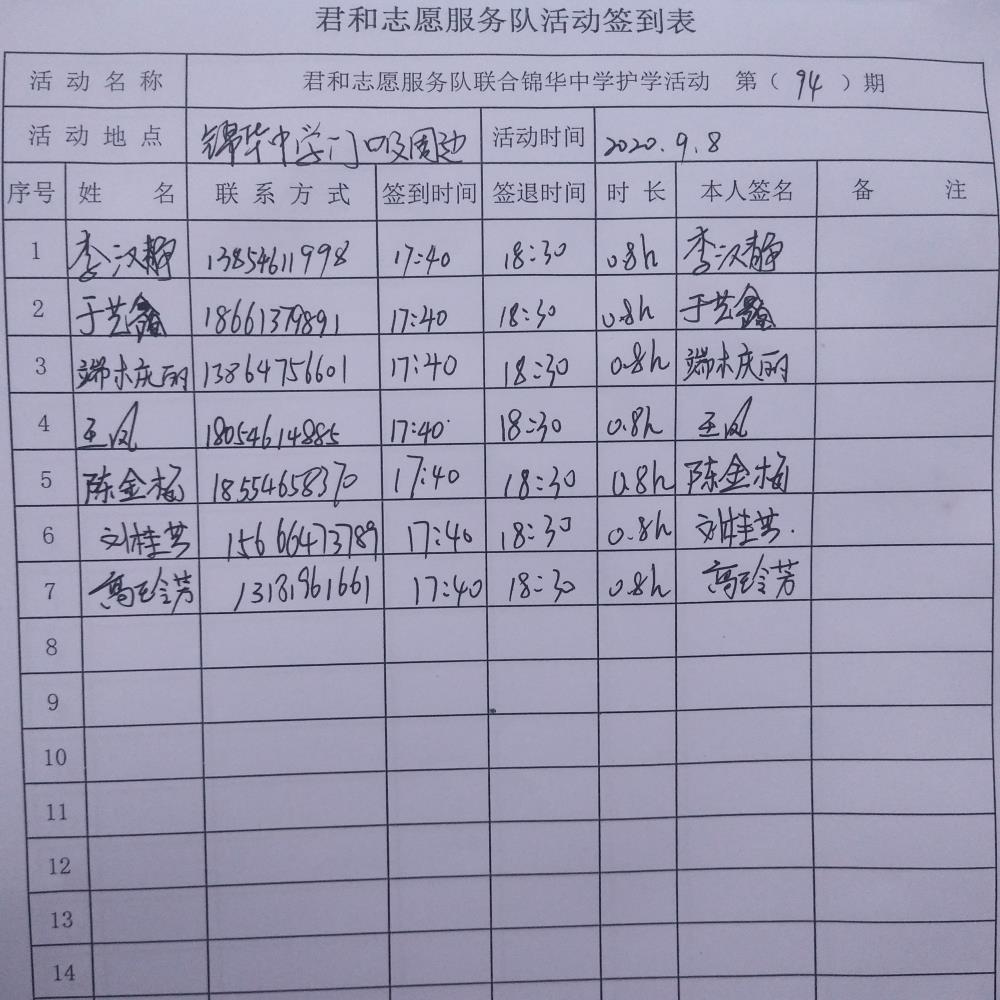 君和志愿服务队活动签到表
活动名称 君和志愿服务队联合锦华中学护学活动 第（94）期
活动地点 锦华中学门口及周边 活动时间 2020.9.8
序号 姓名 联系方式 签到时间 签退时间 时长 本人签名 备注
1 李汉静 13854611998 17:40 18:30 0.8h 李汉静
2 于艺鑫 18661379891 17:40 18:30 0.8h 于艺鑫
3 端木庆丽 13864756601 17:40 18:30 0.8h 端木庆丽
4 王凤 18054614885 17:40 18:30 0.8h 王凤
5 陈金梅 18554658370 17:40 18:30 0.8h 陈金梅
6 刘桂芳 15666473789 17:40 18:30 0.8h 刘桂芳
7 高玲芳 13181961661 17:40 18:30 0.8h 高玲芳
8
9
10
11
12
13
14